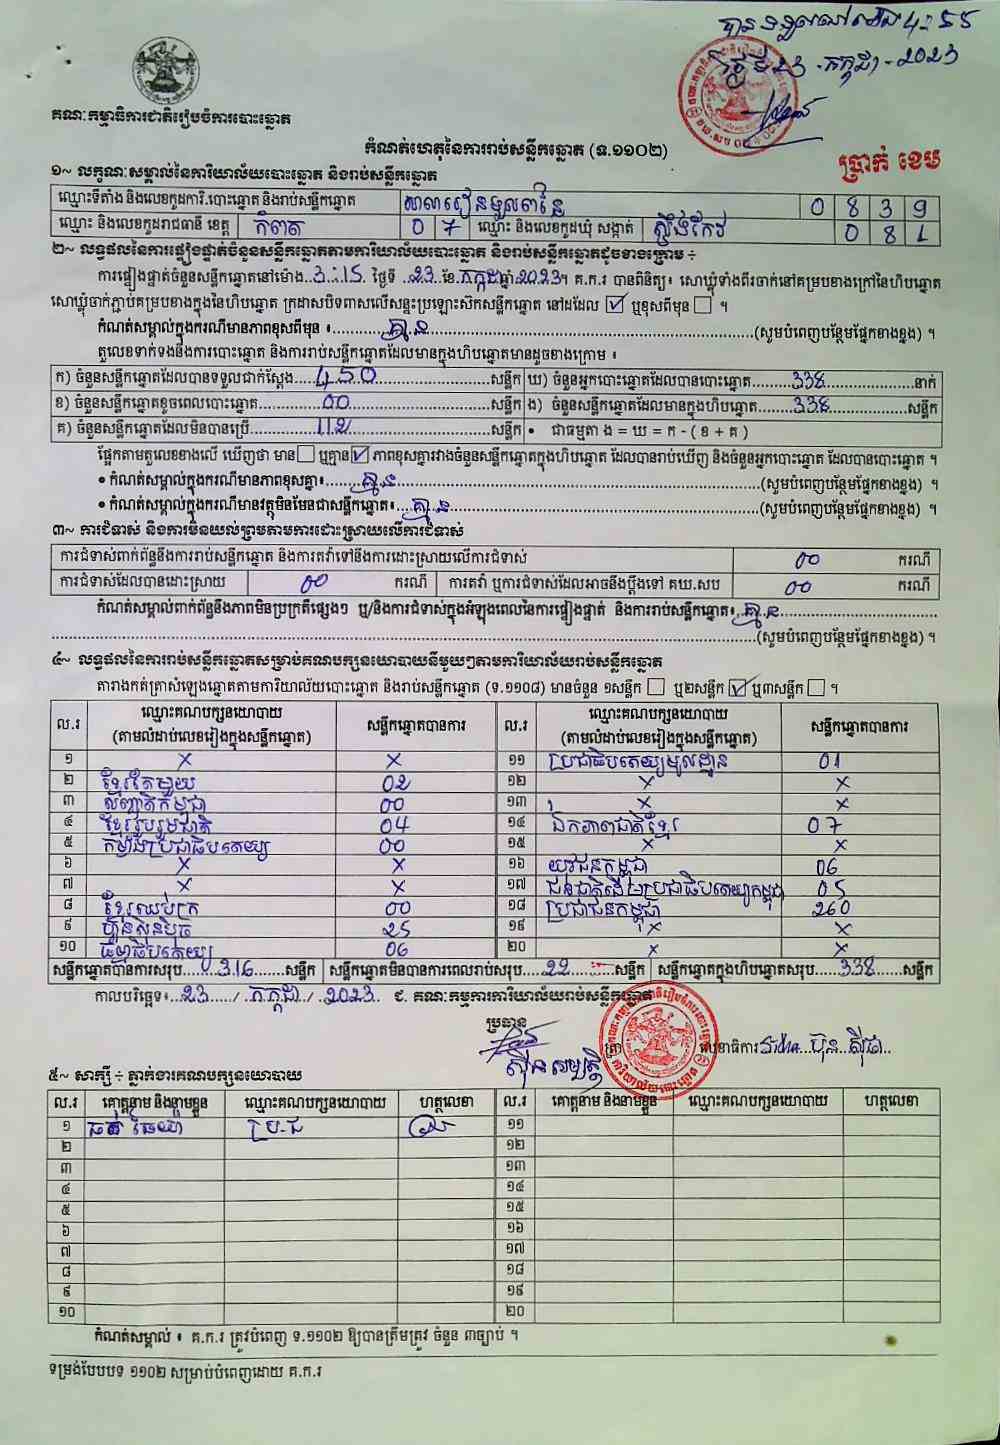 បានទទួលនៅម៉ោង 4:55
ថ្ងៃទី23-កក្កដា-2023
គណៈកម្មាធិការជាតិរៀបចំការបោះឆ្នោត
កំណត់ហេតុនៃការរាប់សន្លឹកឆ្នោត (ទ.១១០២)
ប្រាក់ ខេម
១~ លក្ខណៈសម្គាល់នៃការិយាល័យបោះឆ្នោត និងរាប់សន្លឹកឆ្នោត
ឈ្មោះទីតាំង និងលេខកូដការិ.បោះឆ្នោត និងរាប់សន្លឹកឆ្នោត សាលារៀនមូលដា្ឋន 0 8 3 9
ឈ្មោះ និងលេខកូដរាជធានី ខេត្ត កំពត 0 7 ឈ្មោះ និងលេខកូដឃុំ សង្កាត់ ស្ទឹងកែវ 0 8 1
២~ លទ្ធផលនៃការផ្ទៀងផ្ទាត់ចំនួនសន្លឹកឆ្នោតតាមការិយាល័យបោះឆ្នោត និងរាប់សន្លឹកឆ្នោតដូចខាងក្រោម ÷
ការផ្ទៀងផ្ទាត់ចំនួនសន្លឹកឆ្នោតនៅម៉ោង 3:15 ថ្ងៃទី 23 ខែ កក្កដា ឆ្នាំ 2023 ។ គ.ក.រ បានពិនិត្យ៖ សោឃ្លុំទាំងពីរចាក់នៅគម្របខាងក្រៅនៃហិបឆ្នោត
សោឃ្លុំចាក់ភ្ជាប់គម្របខាងក្នុងនៃហិបឆ្នោត ក្រដាសបិទពាសលើសន្ទះប្រឡោះស៊កសន្លឹកឆ្នោត នៅដដែល ☑ ឬខុសពីមុន ☐ ។
កំណត់សម្គាល់ក្នុងករណីមានភាពខុសពីមុន ៖ គ្មាន (សូមបំពេញបន្ថែមផ្នែកខាងខ្នង) ។
តួលេខទាក់ទងនឹងការបោះឆ្នោត និងការរាប់សន្លឹកឆ្នោតដែលមានក្នុងហិបឆ្នោតមានដូចខាងក្រោម ៖
ក) ចំនួនសន្លឹកឆ្នោតដែលបានទទួលជាក់ស្តែង 450 សន្លឹក ឃ) ចំនួនអ្នកបោះឆ្នោតដែលបានបោះឆ្នោត 338 នាក់
ខ) ចំនួនសន្លឹកឆ្នោតខូចពេលបោះឆ្នោត 00 សន្លឹក ង) ចំនួនសន្លឹកឆ្នោតដែលមានក្នុងហិបឆ្នោត 338 សន្លឹក
គ) ចំនួនសន្លឹកឆ្នោតដែលមិនបានប្រើ 112 សន្លឹក • ជាធម្មតា ង = ឃ = ក - ( ខ + គ )
ផ្អែកតាមតួលេខខាងលើ ឃើញថា មាន ☐ ឬគ្មាន ☑ ភាពខុសគ្នារវាងចំនួនសន្លឹកឆ្នោតក្នុងហិបឆ្នោត ដែលបានរាប់ឃើញ និងចំនួនអ្នកបោះឆ្នោត ដែលបានបោះឆ្នោត ។
• កំណត់សម្គាល់ក្នុងករណីមានភាពខុសគ្នា៖ គ្មាន (សូមបំពេញបន្ថែមផ្នែកខាងខ្នង) ។
• កំណត់សម្គាល់ក្នុងករណីមានវត្ថុមិនមែនជាសន្លឹកឆ្នោត៖ គ្មាន (សូមបំពេញបន្ថែមផ្នែកខាងខ្នង) ។
៣~ ការជំទាស់ និងការមិនយល់ព្រមតាមការដោះស្រាយលើការជំទាស់
ការជំទាស់ពាក់ព័ន្ធនឹងការរាប់សន្លឹកឆ្នោត និងការតវ៉ាទៅនឹងការដោះស្រាយលើការជំទាស់ 00 ករណី
ការជំទាស់ដែលបានដោះស្រាយ 00 ករណី ការតវ៉ា ឬការជំទាស់ដែលអាចនឹងប្តឹងទៅ គឃ.សប 00 ករណី
កំណត់សម្គាល់ពាក់ព័ន្ធនឹងភាពមិនប្រក្រតីផ្សេងៗ ឬ/និងការជំទាស់ក្នុងអំឡុងពេលនៃការផ្ទៀងផ្ទាត់ និងការរាប់សន្លឹកឆ្នោត៖ គ្មាន
(សូមបំពេញបន្ថែមផ្នែកខាងខ្នង) ។
៤~ លទ្ធផលនៃការរាប់សន្លឹកឆ្នោតសម្រាប់គណបក្សនយោបាយនីមួយៗតាមការិយាល័យរាប់សន្លឹកឆ្នោត
តារាងកត់ត្រាសំឡេងឆ្នោតតាមការិយាល័យបោះឆ្នោត និងរាប់សន្លឹកឆ្នោត (ទ.១១០៨) មានចំនួន ១សន្លឹក ☐ ឬ២សន្លឹក ☑ ឬ៣សន្លឹក ☐ ។
ល.រ ឈ្មោះគណបក្សនយោបាយ (តាមលំដាប់លេខរៀងក្នុងសន្លឹកឆ្នោត) សន្លឹកឆ្នោតបានការ ល.រ ឈ្មោះគណបក្សនយោបាយ (តាមលំដាប់លេខរៀងក្នុងសន្លឹកឆ្នោត) សន្លឹកឆ្នោតបានការ
១ × × ១១ ប្រជាធិបតេយ្យមូលដ្ឋាន 01
២ ខ្មែរតែមួយ 02 ១២ × ×
៣ សញ្ជាតិកម្ពុជា 00 ១៣ × ×
៤ ខ្មែររួបរួមជាតិ 04 ១៤ ឯកភាពជាតិខ្មែរ 07
៥ កម្លាំងប្រជាធិបតេយ្យ 00 ១៥ × ×
៦ × × ១៦ យុវជនកម្ពុជា 06
៧ × × ១៧ ជនជាតិដើមប្រជាធិបតេយ្យកម្ពុជា 05
៨ ខ្មែរឈប់ក្រ 00 ១៨ ប្រជាជនកម្ពុជា 260
៩ ហ៊្វុនស៊ិនប៉ិច 25 ១៩ × ×
១០ ធម្មាធិបតេយ្យ 06 ២០ × ×
សន្លឹកឆ្នោតបានការសរុប 316 សន្លឹក សន្លឹកឆ្នោតមិនបានការពេលរាប់សរុប 22 សន្លឹក សន្លឹកឆ្នោតក្នុងហិបឆ្នោតសរុប 338 សន្លឹក
កាលបរិច្ឆេទ៖ 23 / កក្កដា / 2023 ជ. គណៈកម្មការការិយាល័យរាប់សន្លឹកឆ្នោត
ប្រធាន
ស៊ីន សម្បត្តិ ត្រា លេខាធិការ
៥~ សាក្សី ÷ ភ្នាក់ងារគណបក្សនយោបាយ
ល.រ គោត្តនាម និងនាមខ្លួន ឈ្មោះគណបក្សនយោបាយ ហត្ថលេខា ល.រ គោត្តនាម និងនាមខ្លួន ឈ្មោះគណបក្សនយោបាយ ហត្ថលេខា
១ ប្រ.ជ ១១
២ ១២
៣ ១៣
៤ ១៤
៥ ១៥
៦ ១៦
៧ ១៧
៨ ១៨
៩ ១៩
១០ ២០
កំណត់សម្គាល់ ៖ គ.ក.រ ត្រូវបំពេញ ទ.១១០២ ឱ្យបានត្រឹមត្រូវ ចំនួន ៣ច្បាប់ ។
ទម្រង់បែបបទ ១១០២ សម្រាប់បំពេញដោយ គ.ក.រ